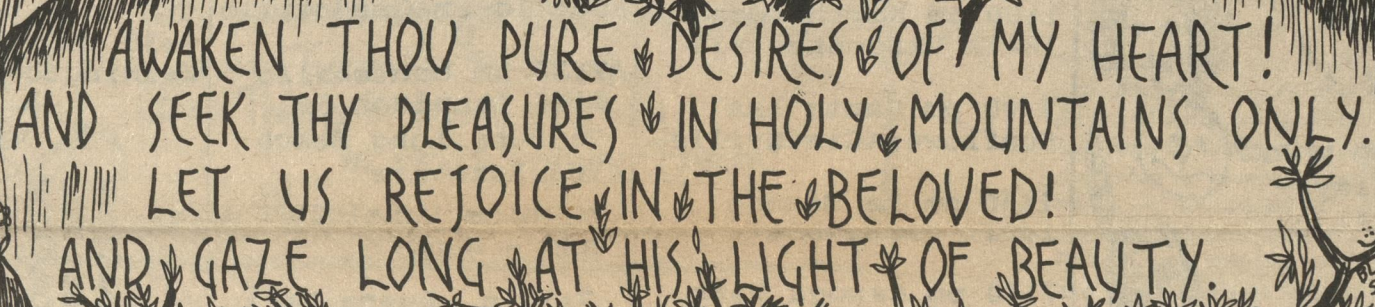 AWAKEN THOU PURE DESIRES OF MY HEART!
AND SEEK THY PLEASURES IN HOLY MOUNTAINS ONLY.
LET US REJOICE IN THE BELOVED!
AND GAZE LONG AT HIS LIGHT OF BEAUTY.